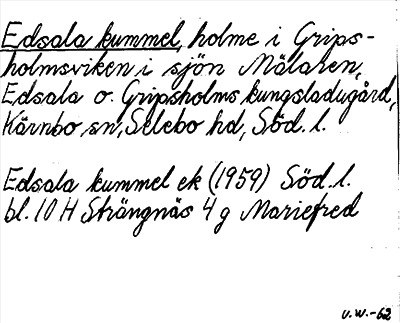 Edsala kummel, holme i Grips-
holmsviken i sjön Mälaren,
Edsala o. Gripsholms kungsladugård,
Kärnbo sn, Selebo hd, Söd. l.
Edsala kummel ek (1959) Söd. l.
bl. 10 H Strängnäs 4 g Mariefred
U.W.-62